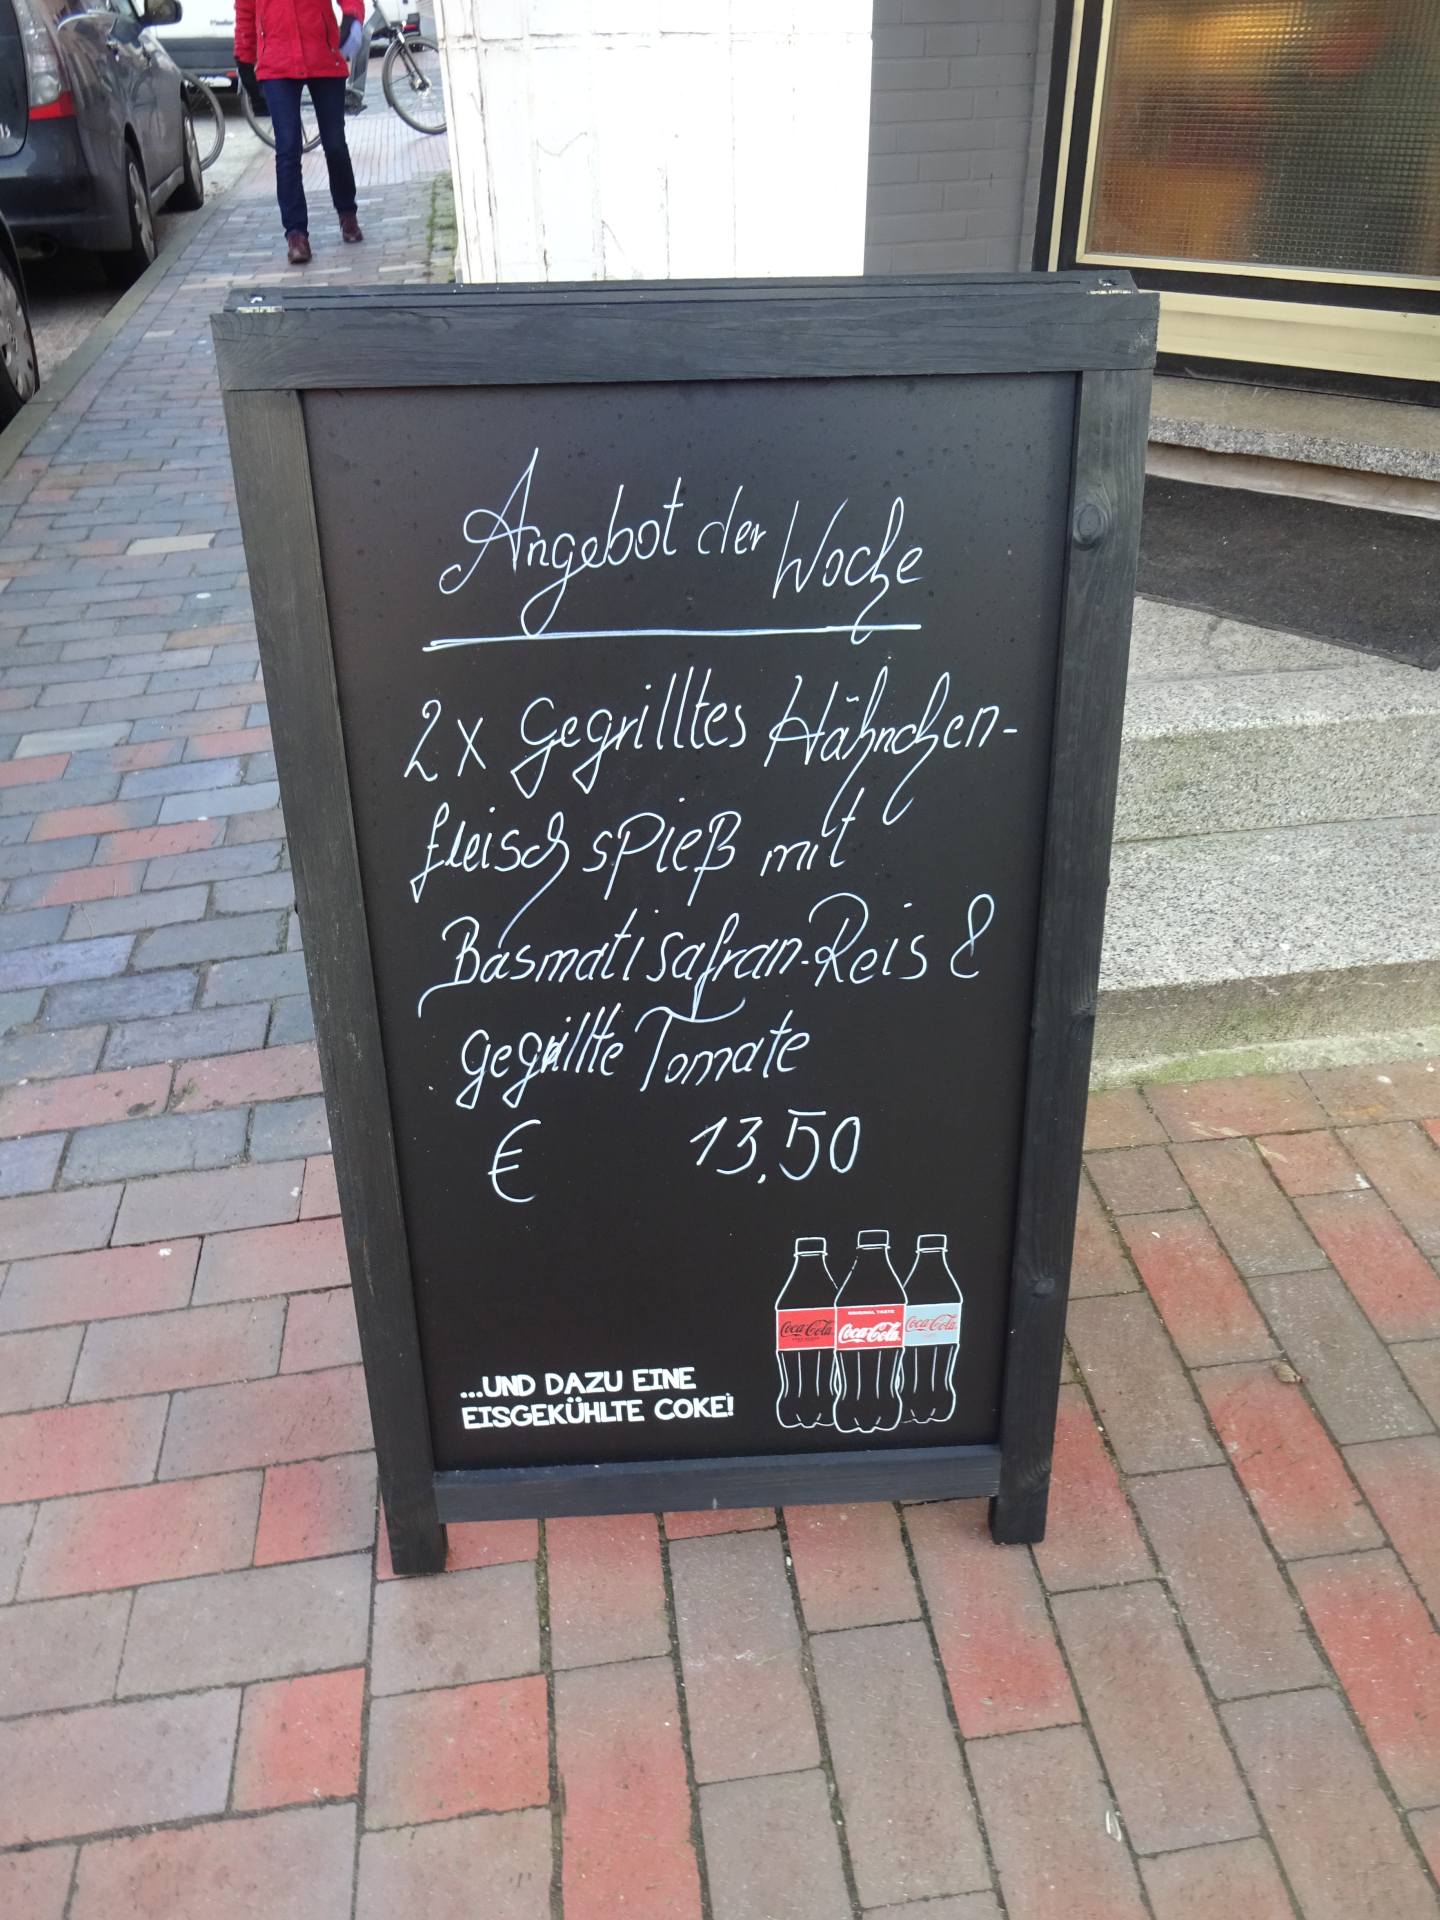 Angebot der Woche
2x Gegrilltes Hähnchen-
fleisch spieß mit
Basmati Safran-Reis &
gegrillte Tomate
€ 13,50
...UND DAZU EINE
EISGEKÜHLTE COKE!
Coca-Cola
ORIGINAL TASTE
Coca-Cola
Coca-Cola